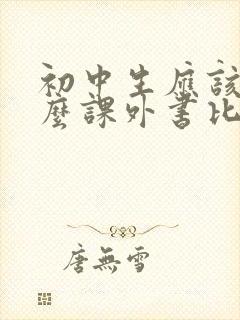 初中生應該
麼課外書比
唐無雪